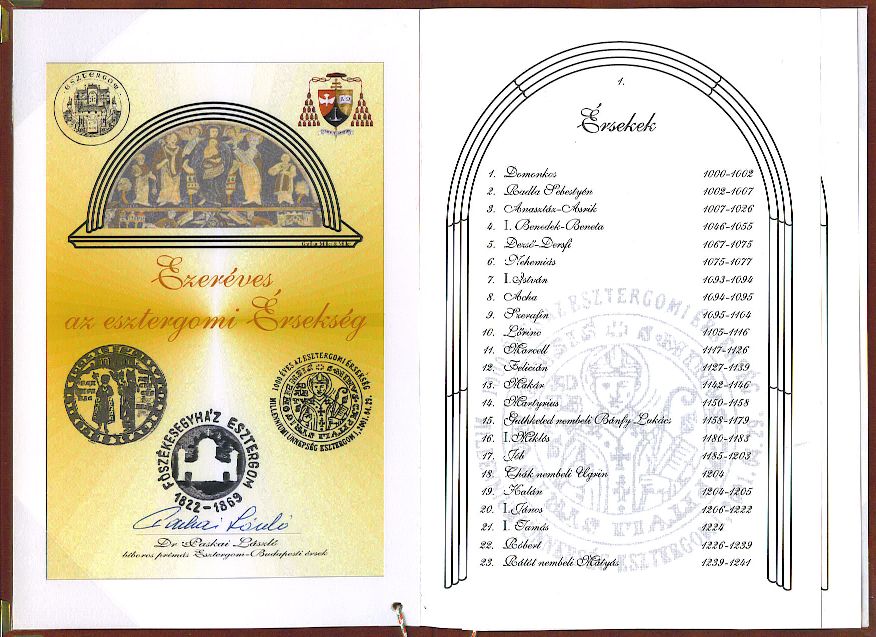 ESZTERGOM
Ezeréves
az esztergomi Érsekség
1000 ÉVES AZ ESZTERGOMI ÉRSEKSÉG
MILLENNIUMI ÜNNEPSÉG ESZTERGOM
FŐSZÉKESEGYHÁZ ESZTERGOM
1822-1869
Paskai László
Dr Paskai László
bíboros prímás Esztergom-Budapesti érsek
1.
Érsekek
1. Domonkos 1000-1002
2. Radla Sebestyén 1002-1007
3. Anasztáz-Asrik 1007-1026
4. I. Benedek-Beneta 1046-1055
5. Dezső-Dersfi 1067-1075
6. Nehemiás 1075-1077
7. I. István 1093-1094
8. Acha 1094-1095
9. Szerafin 1095-1104
10. Lőrinc 1105-1116
11. Marcell 1117-1126
12. Felicián 1127-1139
13. Makár 1142-1146
14. Martyrius 1150-1158
15. Guthkeled nembeli Bánfy Lukács 1158-1179
16. I. Miklós 1180-1183
17. Jób 1185-1203
18. Chák nembeli Ugrin 1204
19. Kalán 1204-1205
20. I. János 1206-1222
21. I. Tamás 1224
22. Róbert 1226-1239
23. Rátót nembeli Mátyás 1239-1241